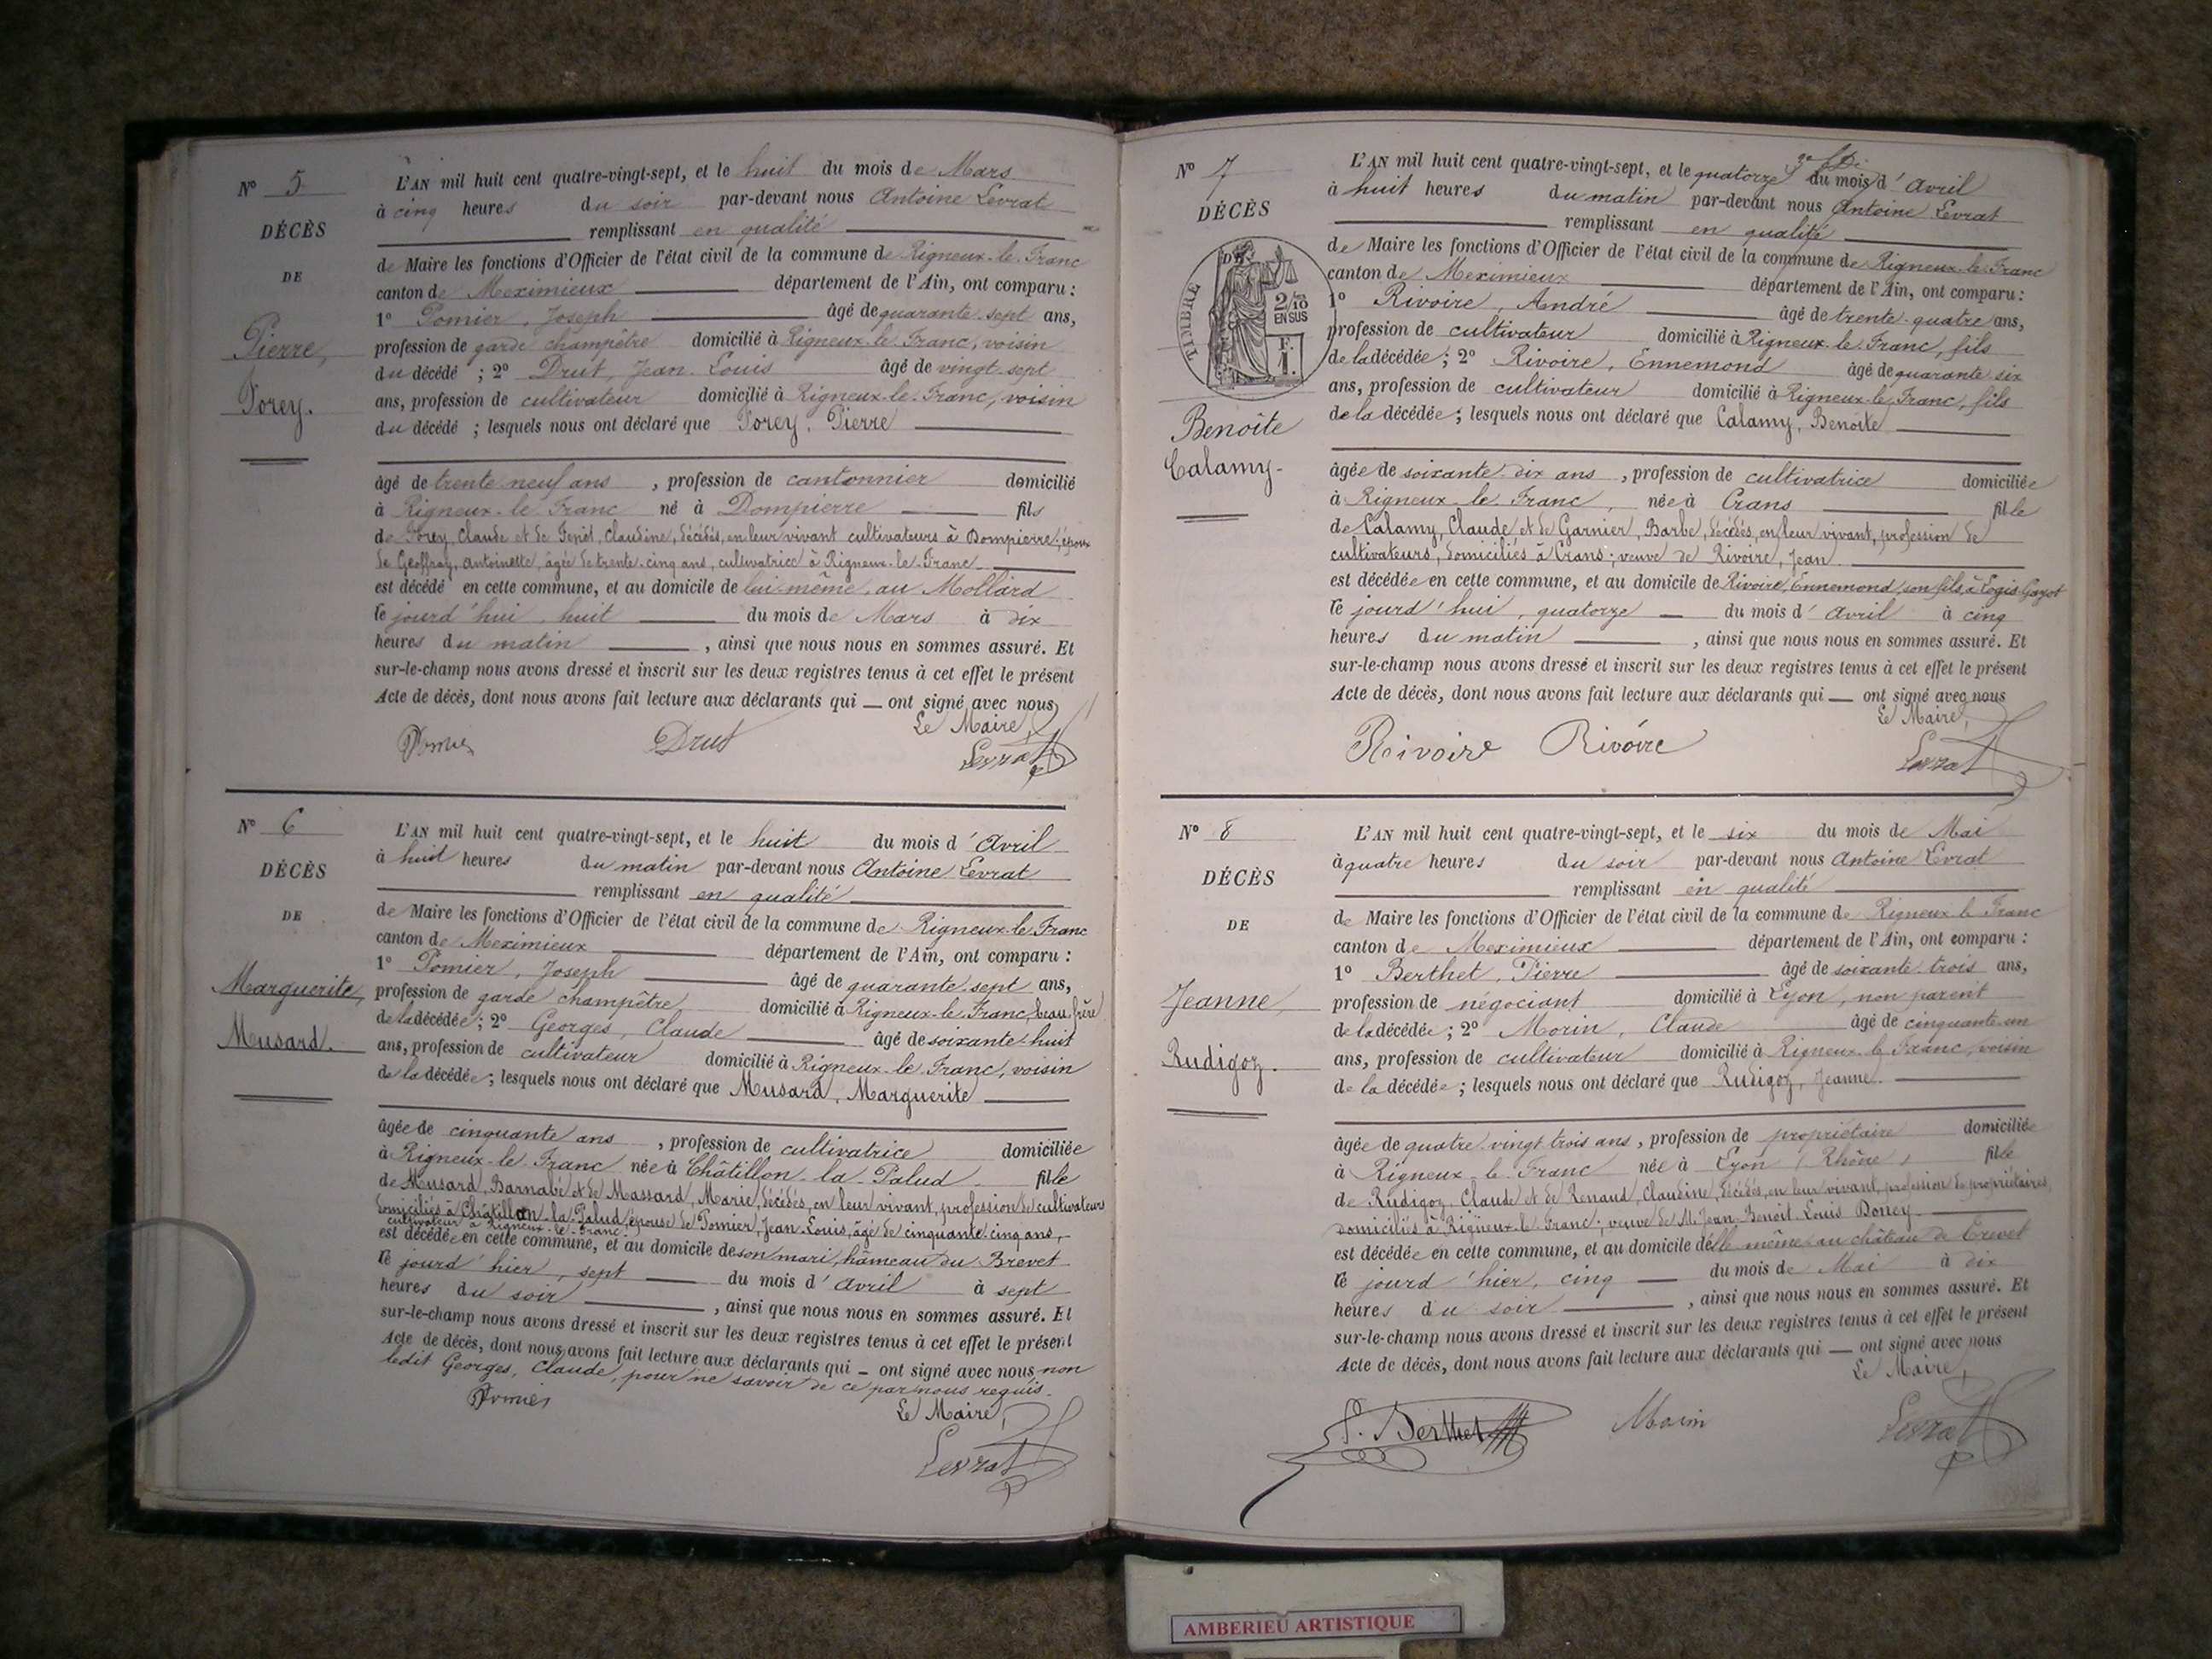 N° 5
DÉCÈS
DE
Pierre,
Forey.
L'AN mil huit cent quatre-vingt-sept, et le huit du mois de Mars
à cinq heures du soir par-devant nous Antoine Levrat
remplissant en qualité
de Maire les fonctions d'Officier de l'état civil de la commune de Rigneux-le-Franc
canton de Meximieux département de l'Ain, ont comparu :
1° Pomier, Joseph âgé de quarante-sept ans,
profession de garde champêtre domicilié à Rigneux-le-Franc, voisin
du décédé ; 2° Drut, Jean-Louis âgé de vingt-sept
ans, profession de cultivateur domicilié à Rigneux-le-Franc, voisin
du décédé ; lesquels nous ont déclaré que Forey, Pierre
âgé de trente-neuf ans , profession de cantonnier domicilié
à Rigneux-le-Franc né à Dompierre fils
de Forey, Claude et de Claudine, décédés, en leur vivant cultivateurs à Dompierre; époux
de Geoffray, Antoinette, âgée de trente-cinq ans, cultivatrice à Rigneux-le-Franc
est décédé en cette commune, et au domicile de lui-même, au Mollard
le jourd'hui, huit du mois de Mars à dix
heures du matin , ainsi que nous nous en sommes assuré. Et
sur-le-champ nous avons dressé et inscrit sur les deux registres tenus à cet effet le présent
Acte de décès, dont nous avons fait lecture aux déclarants qui — ont signé avec nous
Le Maire,
Pomier Drut Levrat
N° 6
DÉCÈS
DE
Marguerite,
Musard.
L'AN mil huit cent quatre-vingt-sept, et le huit du mois d'Avril
à huit heures du matin par-devant nous Antoine Levrat
remplissant en qualité
de Maire les fonctions d'Officier de l'état civil de la commune de Rigneux-le-Franc
canton de Meximieux département de l'Ain, ont comparu :
1° Pomier, Joseph âgé de quarante-sept ans,
profession de garde champêtre domicilié à Rigneux-le-Franc, beau-frère
de la décédée ; 2° Georges, Claude âgé de soixante-huit
ans, profession de cultivateur domicilié à Rigneux-le-Franc, voisin
de la décédée ; lesquels nous ont déclaré que Musard, Marguerite
âgée de cinquante ans , profession de cultivatrice domiciliée
à Rigneux-le-Franc née à Châtillon-la-Palud fille
de Musard, Barnabé et de Massard, Marie, décédés, en leur vivant, profession de cultivateurs
domiciliés à Châtillon-la-Palud, épouse de Pomier, Jean-Louis, âgé de cinquante-cinq ans,
cultivateur à Rigneux-le-Franc
est décédée en cette commune, et au domicile de son mari, hameau du Brevet
le jourd'hier, sept du mois d'Avril à sept
heures du soir , ainsi que nous nous en sommes assuré. Et
sur-le-champ nous avons dressé et inscrit sur les deux registres tenus à cet effet le présent
Acte de décès, dont nous avons fait lecture aux déclarants qui — ont signé avec nous non
ledit Georges, Claude, pour ne savoir de ce par nous requis.
Pomier
Le Maire,
Levrat
N° 7
DÉCÈS
TIMBRE
2/10
EN SUS
F.
1.
Benoîte
Calamy.
L'AN mil huit cent quatre-vingt-sept, et le quatorze du mois d'Avril
à huit heures du matin par-devant nous Antoine Levrat
remplissant en qualité
de Maire les fonctions d'Officier de l'état civil de la commune de Rigneux-le-Franc
canton de Meximieux département de l'Ain, ont comparu :
1° Rivoire, André âgé de trente-quatre ans,
profession de cultivateur domicilié à Rigneux-le-Franc, fils
de la décédée ; 2° Rivoire, Ennemond âgé de quarante-six
ans, profession de cultivateur domicilié à Rigneux-le-Franc, fils
de la décédée ; lesquels nous ont déclaré que Calamy, Benoîte
âgée de soixante-dix ans , profession de cultivatrice domiciliée
à Rigneux-le-Franc, née à Crans fille
de Calamy, Claude et de Garnier, Barbe, décédés, en leur vivant, profession de
cultivateurs, domiciliés à Crans; veuve de Rivoire, Jean
est décédée en cette commune, et au domicile de Rivoire, Ennemond, son fils, à Logis-Gayot
le jourd'hui, quatorze du mois d'Avril à cinq
heures du matin , ainsi que nous nous en sommes assuré. Et
sur-le-champ nous avons dressé et inscrit sur les deux registres tenus à cet effet le présent
Acte de décès, dont nous avons fait lecture aux déclarants qui — ont signé avec nous
Le Maire,
Rivoire Rivoire Levrat
N° 8
DÉCÈS
DE
Jeanne,
Rudigoz.
L'AN mil huit cent quatre-vingt-sept, et le six du mois de Mai
à quatre heures du soir par-devant nous Antoine Levrat
remplissant en qualité
de Maire les fonctions d'Officier de l'état civil de la commune de Rigneux-le-Franc
canton de Meximieux département de l'Ain, ont comparu :
1° Berthet, Pierre âgé de soixante-trois ans,
profession de négociant domicilié à Lyon, non parent
de la décédée ; 2° Morin, Claude âgé de cinquante-un
ans, profession de cultivateur domicilié à Rigneux-le-Franc, voisin
de la décédée ; lesquels nous ont déclaré que Rudigoz, Jeanne.
âgée de quatre-vingt-trois ans, profession de propriétaire domiciliée
à Rigneux-le-Franc née à Lyon (Rhône) fille
de Rudigoz, Claude et de Renaud, Claudine, décédés, en leur vivant, profession de propriétaires,
domiciliés à Rigneux-le-Franc; veuve de M. Jean-Benoît-Louis
est décédée en cette commune, et au domicile d'elle-même au château de
le jourd'hier, cinq du mois de Mai à dix
heures du soir , ainsi que nous nous en sommes assuré. Et
sur-le-champ nous avons dressé et inscrit sur les deux registres tenus à cet effet le présent
Acte de décès, dont nous avons fait lecture aux déclarants qui — ont signé avec nous
Le Maire,
P. Berthet Morin Levrat
AMBERIEU ARTISTIQUE